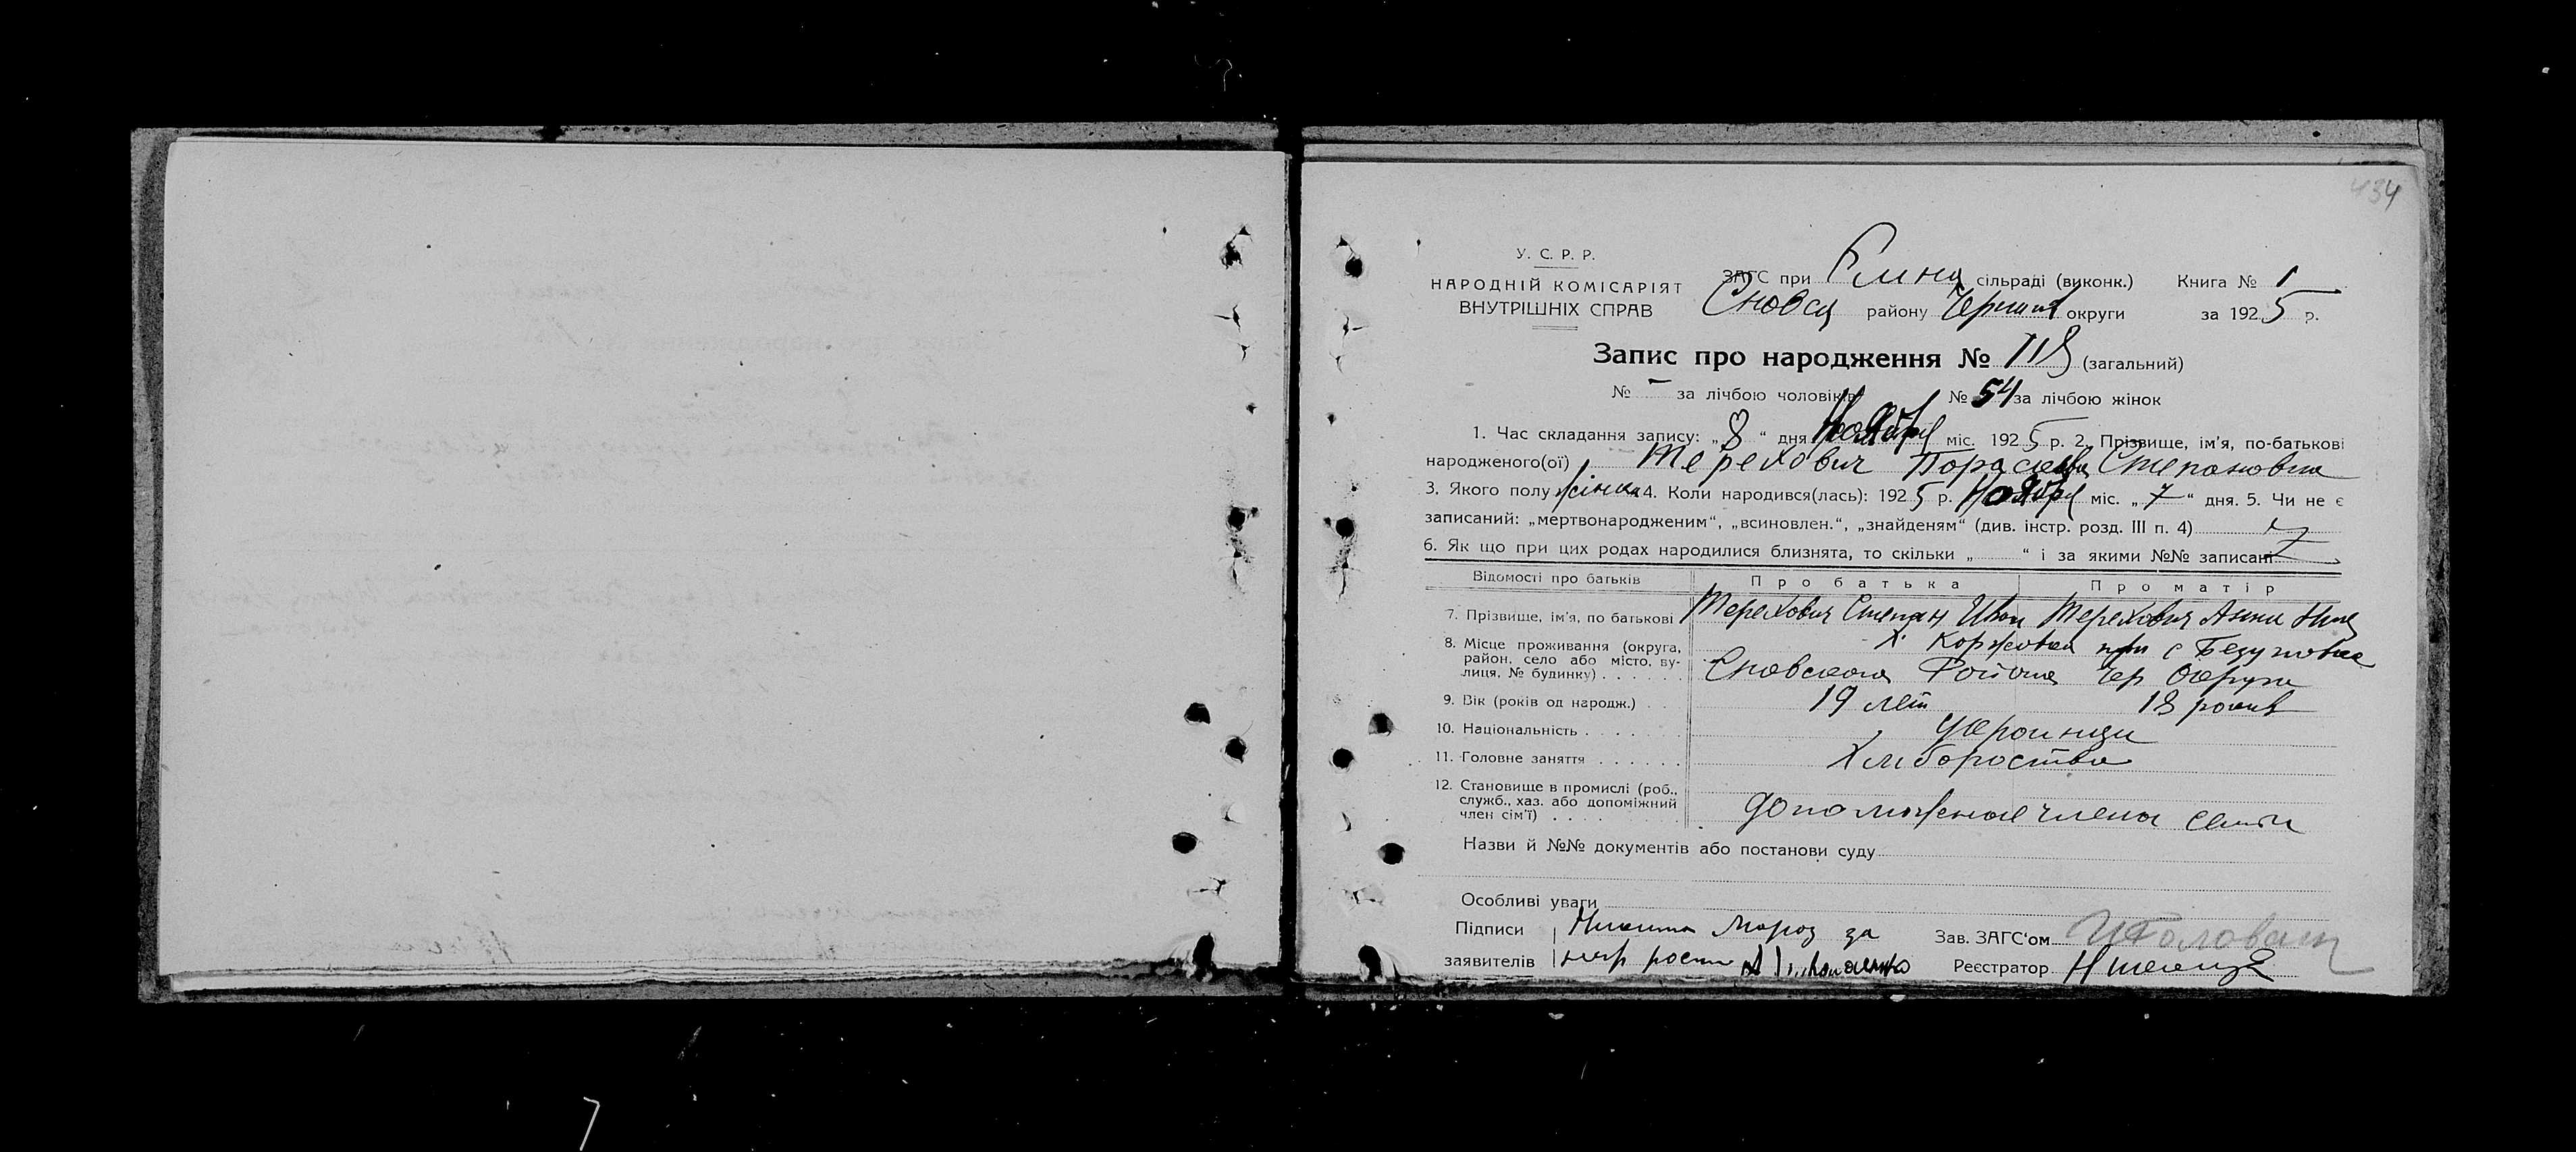 434
У. С. Р. Р.
НАРОДНІЙ КОМІСАРІЯТ
ВНУТРІШНІХ СПРАВ
ЗАГС при Єлина сільраді (виконк.) Книга № 1
району Черниг округи за 1925 р.
Запис про народження № 118 (загальний)
№ – за лічбою чоловіків № 54 за лічбою жінок
1. Час складання запису: „8“ дня Ноября міс. 1925 р. 2. Прізвище, ім'я, по-батькові
народженого(ої) Терехович Порасковя Степановна
3. Якого полу жінка 4. Коли народився(лась): 1925 р. Ноября міс. „7“ дня. 5. Чи не є
записаний: „мертвонародженим“, „всиновлен.“, „знайденям“ (див. інстр. розд. III п. 4)
6. Як що при цих родах народилися близнята, то скільки „ “ і за якими №№ записані
Відомості про батьків Про батька Про матір
7. Прізвище, ім'я, по батькові Терехович Степан Иван Терехович Анна
8. Місце проживання (округа, район, село або місто, вулиця, № будинку) х. Коржовка при с
Сновского Района Чер Округи
9. Вік (років од народж.) 19 лет 18 років
10. Національність украинцы
11. Головне заняття Хліборобство
12. Становище в промислі (роб., служб., хаз. або допоміжний член сім'ї) члена семьи
Назви й №№ документів або постанови суду
Особливі уваги
Підписи Никита Мороз за
заявителів
Зав. ЗАГС'ом
Реєстратор